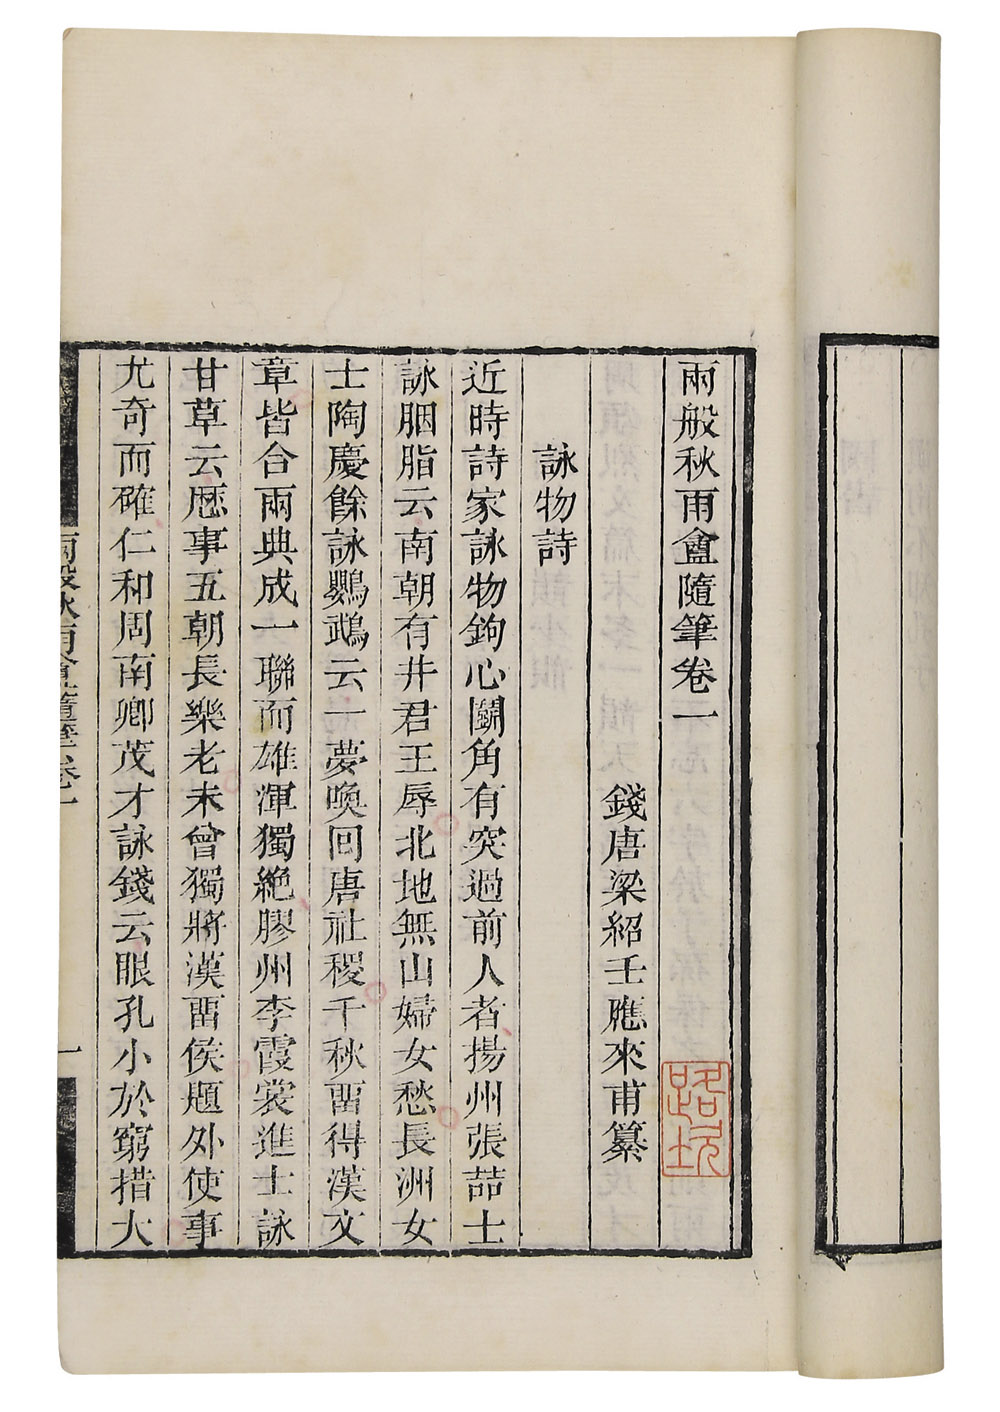 兩般秋雨盦隨筆卷一
錢唐梁紹壬應來甫纂
詠物詩
近時詩家詠物鉤心鬭角有突過前人者揚州張喆士
詠胭脂云南朝有井君王辱北地無山婦女愁長洲女
士陶慶餘詠鸚鵡云一夢喚回唐社稷千秋畱得漢文
章皆合兩典成一聯而雄渾獨絶膠州李霞裳進士詠
甘草云歷事五朝長樂老未曾獨將漢畱侯題外使事
尤奇而確仁和周南卿茂才詠錢云眼孔小於窮措大
兩般秋雨盦隨筆卷一
一